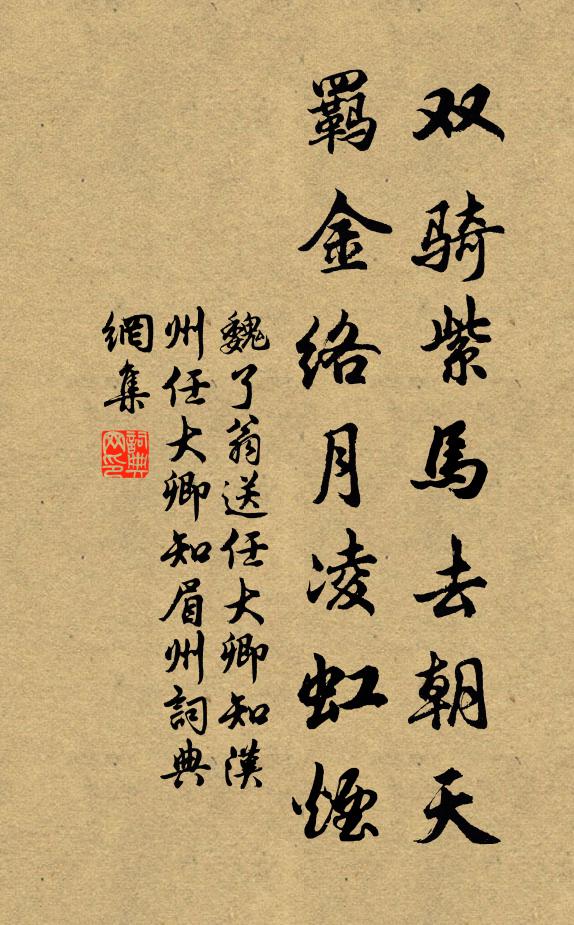 双骑紫馬去朝天
羁金络月凌虹煙
魏了翁送任大卿知漢
州任大卿知眉州詞典
網集
詞典网印